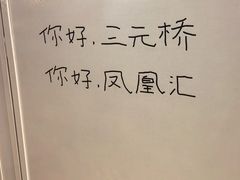 你好,三元桥
你好,凤凰汇